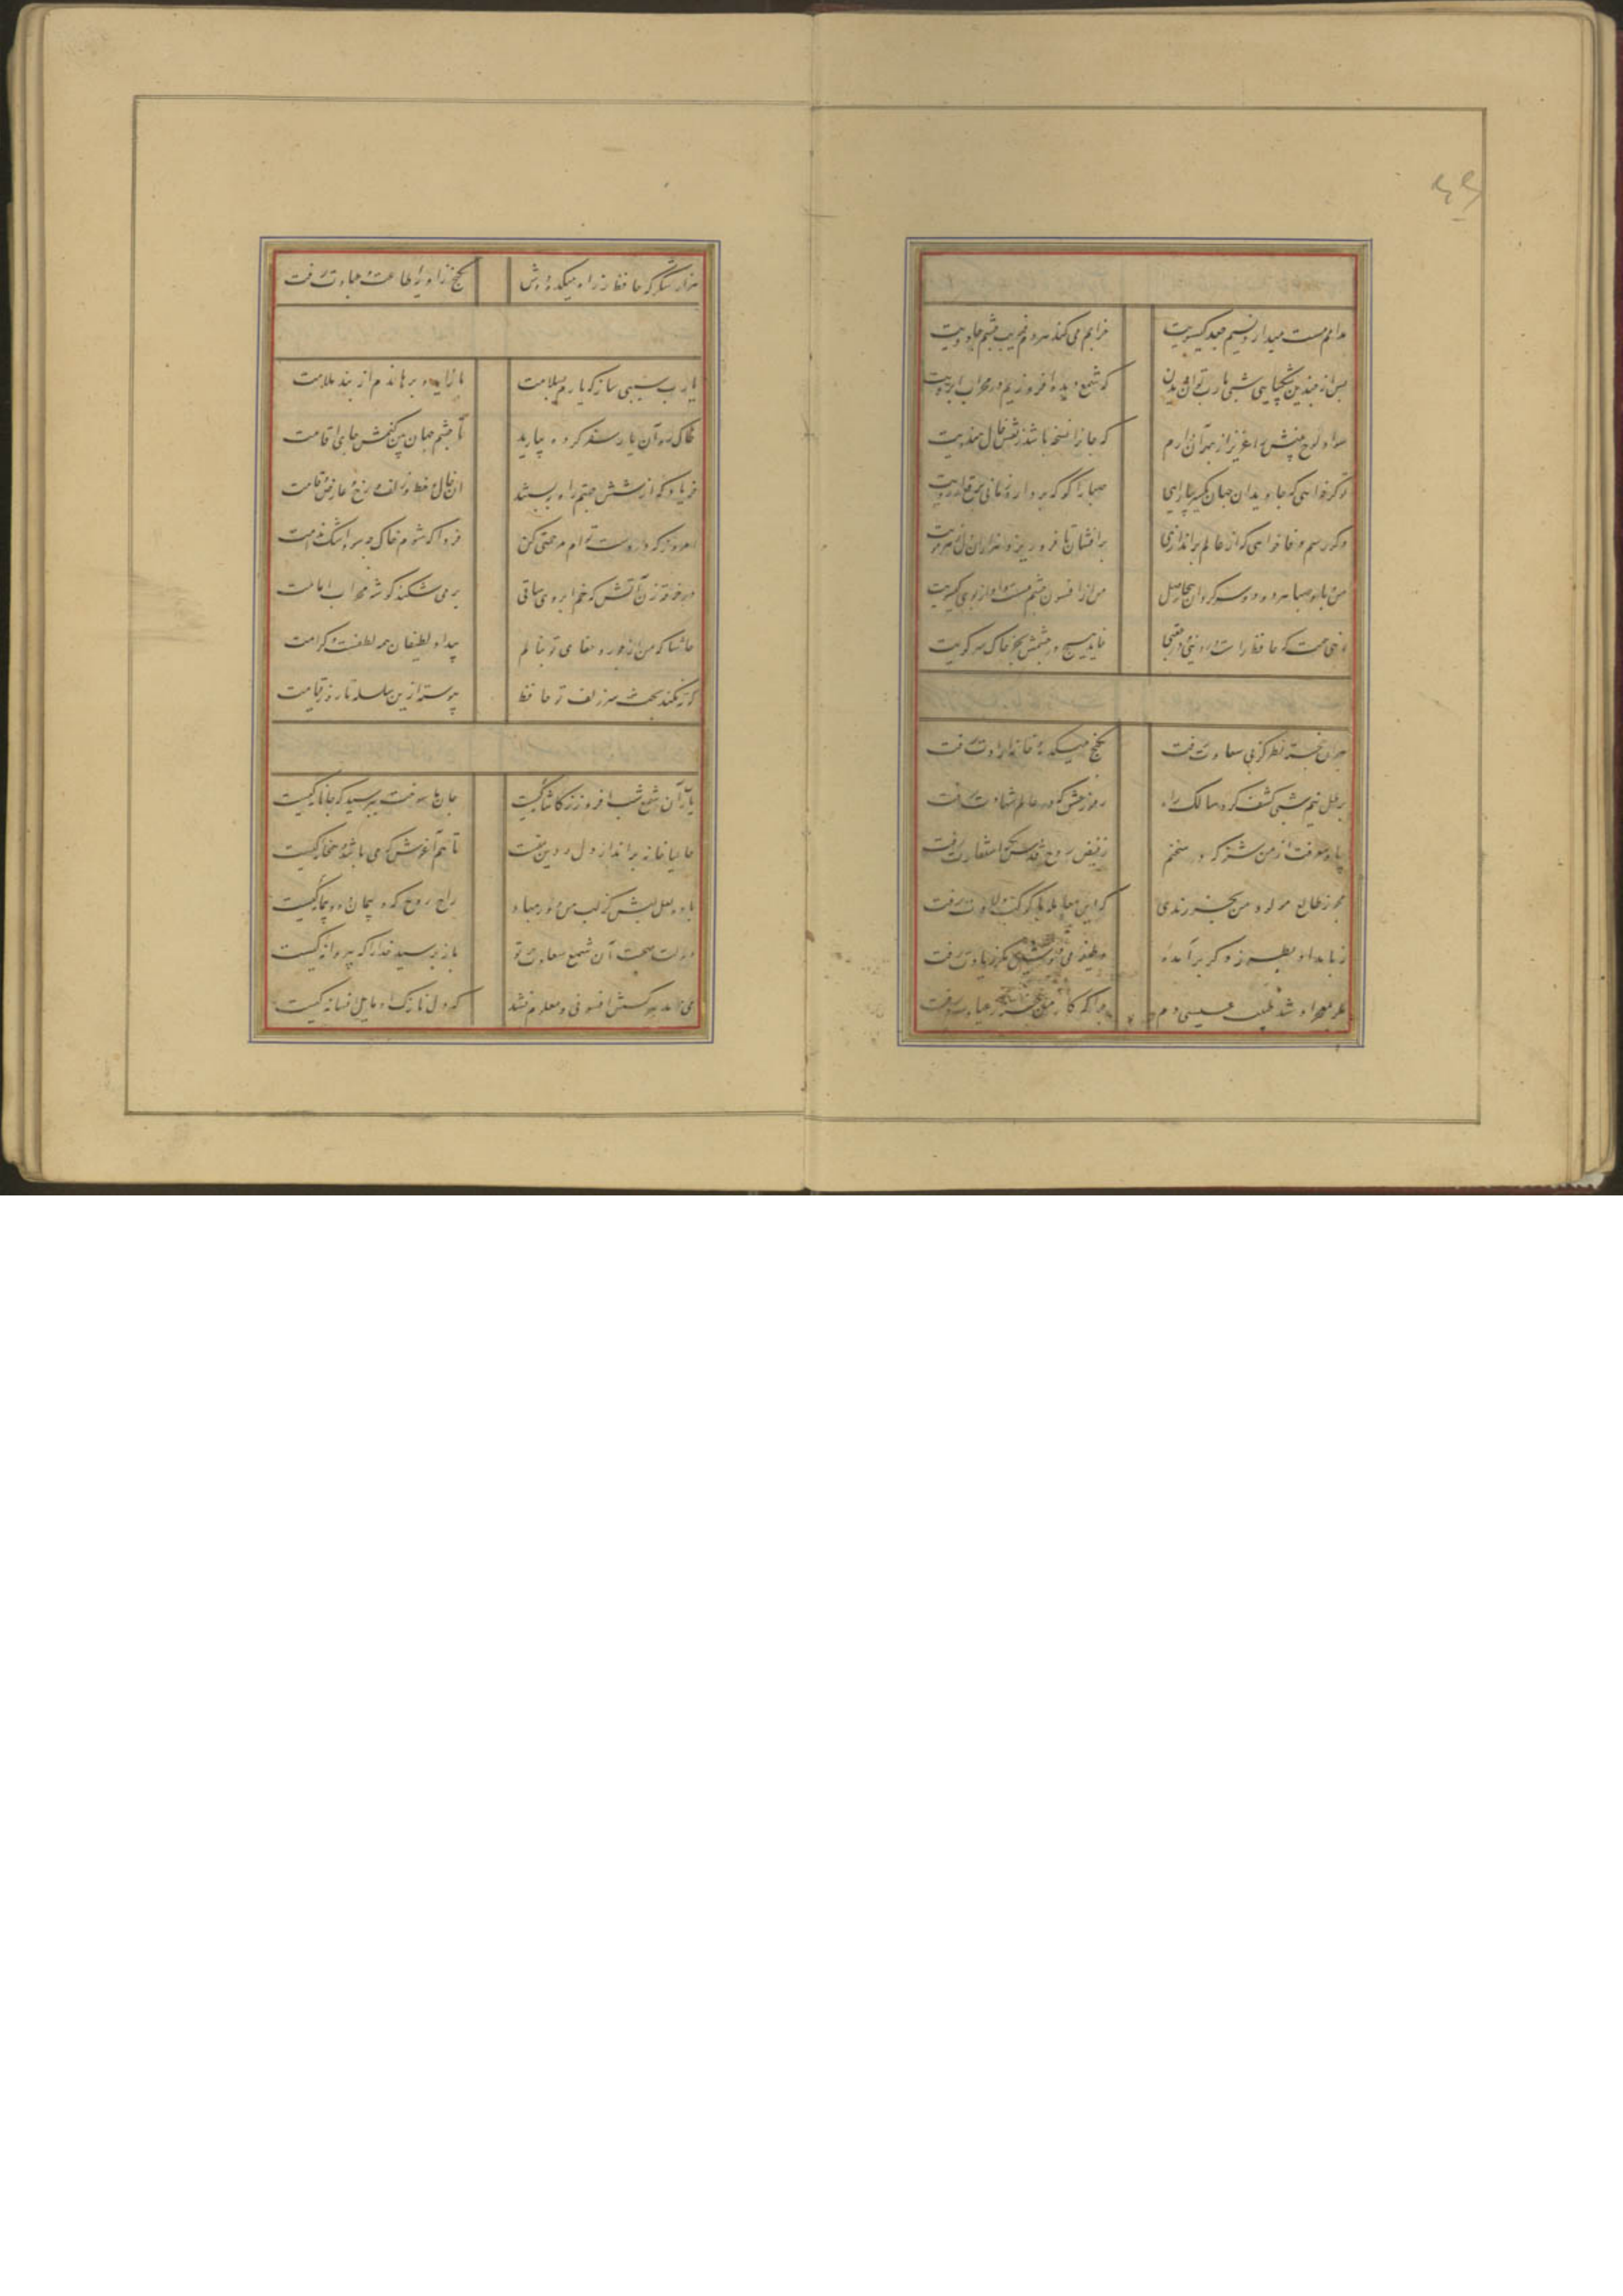 مدامم مست میدارد نسیم جعد گیسویت خرابم می کند هردم فریب چشم جادویت
پس از چندین شکیبایی شبی یارب توان دیدن که شمع دیده افروزیم در محراب ابرویت
سواد لوح بینش را عزیز از بهر آن دارم که جانرا نسخه باشد ز نقش خال هندویت
تو گر خواهی که جاویدان جهان یکسر بیارایی صبا را گو که بردارد زمانی برقع از رویت
وگر رسم فنا خواهی که از عالم براندازی برافشان تا فرو ریزد هزاران دل ز هر مویت
من و باد صبا هر دو دو سرگردان بیحاصل من از افسون چشمت مست و او از بوی گیسویت
زهی همت که حافظ راست از دنیی و از عقبی نیاید هیچ در چشمش بجز خاک سر کویت
هر آن خجسته نظر کز پی سعادت رفت بکنج میکده و خانه ارادت رفت
ز رطل نیم شبی کشف کرد سالک راه رموز عشق که در عالم شهادت رفت
بیا و معرفت از من شنو که در سخنم ز فیض روح قدس نکته استفادت رفت
مجو ز طالع مولود من بجز رندی که این معامله با کوکب ولادت رفت
ز بامداد بطرز دگر برآمده
مگر بمعجزه او شد طبیب عیسی دم چرا که کار من خسته از عیادت رفت
هزار شکر که حافظ ز راه میکده دوش بکنج زاویه طاعت و عبادت رفت
یارب سببی ساز که یارم بسلامت بازآید و برهاندم از بند ملامت
خاک ره آن یار سفر کرده بیارید تا چشم جهان بین کنمش جای اقامت
فریاد که از شش جهتم راه ببستند آن خال و خط و زلف و رخ و عارض و قامت
امروز که در دست توام مرحمتی کن فردا که شوم خاک چه سود اشک ندامت
در خرقه زن آتش که خم ابروی ساقی بر می شکند گوشه محراب امامت
حاشا که من از جور و جفای تو بنالم بیداد لطیفان همه لطفست و کرامت
کوته نکند بحث سر زلف تو حافظ پیوسته ازین سلسله تا روز قیامت
یارب آن شمع شب افروز ز کاشانه کیست جان ما سوخت بپرسید که جانانه کیست
حالیا خانه برانداز دل و دین منست تا هم آغوش که می باشد و همخانه کیست
باده لعل لبش کز لب من دور مباد راح روح که و پیمان ده پیمانه کیست
دولت صحبت آن شمع سعادت پرتو باز پرسید خدا را که به پروانه کیست
می دمد هر کسش افسونی و معلوم نشد که دل نازک او مایل افسانه کیست